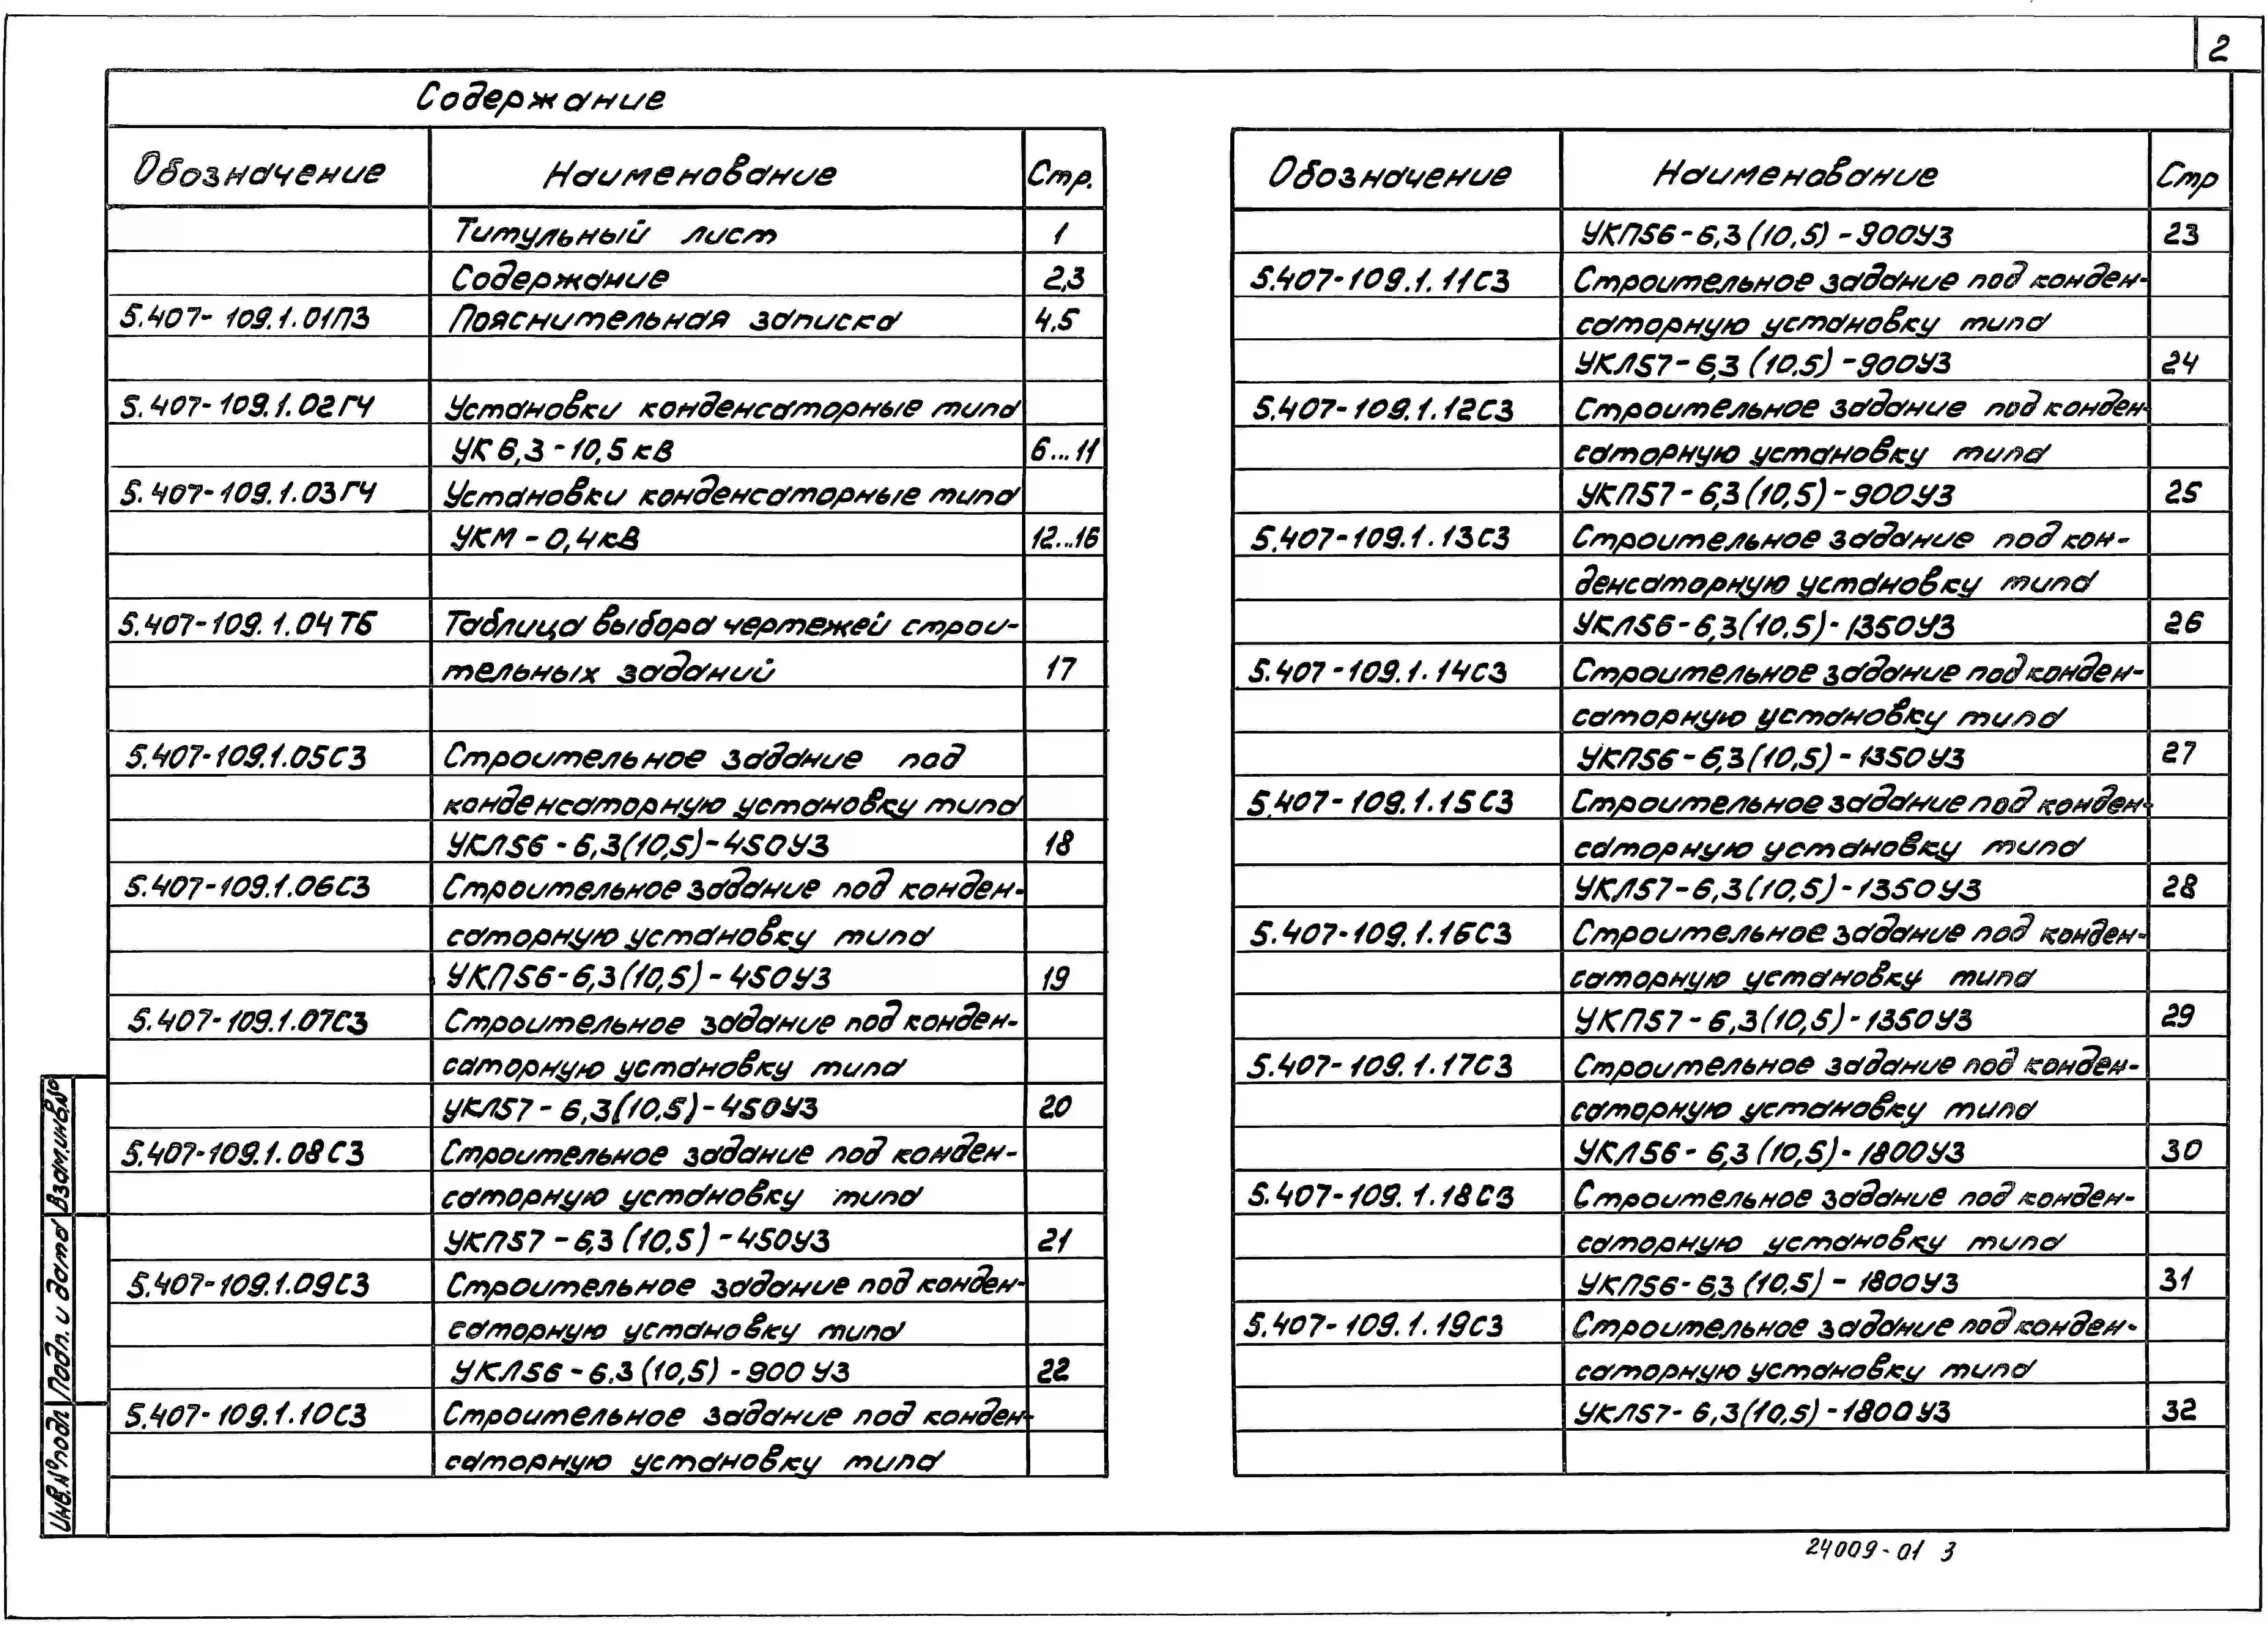 2
Содержание
Обозначение Наименование Стр.
Титульный лист 1
Содержание 2,3
5.407-109.1.01ПЗ Пояснительная записка 4.5
5.407-109.1.02ГЧ Установки конденсаторные типа
УК 6,3-10,5 кВ 6...11
5.407-109.1.03ГЧ Установки конденсаторные типа
УКМ-0,4кВ 12...16
5.407-109.1.04ТБ Таблица выбора чертежей строи-
тельных заданий 17
5.407-109.1.05СЗ Строительное задание под
конденсаторную установку типа
УКЛ56-6,3(10,5)-450У3 18
5.407-109.1.06СЗ Строительное задание под конден-
саторную установку типа
УКП56-6,3(10,5)-450У3 19
5.407-109.1.07СЗ Строительное задание под конден-
саторную установку типа
УКЛ57-6,3(10,5)-450У3 20
5.407-109.1.08СЗ Строительное задание под конден-
саторную установку типа
УКП57-6,3(10,5)-450У3 21
5.407-109.1.09СЗ Строительное задание под конден-
саторную установку типа
УКЛ56-6.3(10,5)-900У3 22
5.407-109.1.10СЗ Строительное задание под конден-
саторную установку типа
Обозначение Наименование Стр
УКП56-6,3(10,5)-900У3 23
5.407-109.1.11СЗ Строительное задание под конден-
саторную установку типа
УКЛ57-6,3(10,5)-900У3 24
5.407-109.1.12СЗ Строительное задание под конден-
саторную установку типа
УКП57-6,3(10,5)-900У3 25
5.407-109.1.13СЗ Строительное задание под кон-
денсаторную установку типа
УКЛ56-6,3(10,5)-1350У3 26
5.407-109.1.14СЗ Строительное задание под конден-
саторную установку типа
УКП56-6,3(10,5)-1350У3 27
5.407-109.1.15СЗ Строительное задание под конден-
саторную установку типа
УКЛ57-6,3(10,5)-1350У3 28
5.407-109.1.16СЗ Строительное задание под конден-
саторную установку типа
УКП57-6,3(10,5)-1350У3 29
5.407-109.1.17СЗ Строительное задание под конден-
саторную установку типа
УКЛ56-6,3(10,5)-1800У3 30
5.407-109.1.18СЗ Строительное задание под конден-
саторную установку типа
УКП56-6,3(10,5)-1800У3 31
5.407-109.1.19СЗ Строительное задание под конден-
саторную установку типа
УКЛ57-6,3(10,5)-1800У3 32
Взам.инв.№
Подп. и дата
Инв.№подл
24009-01 3